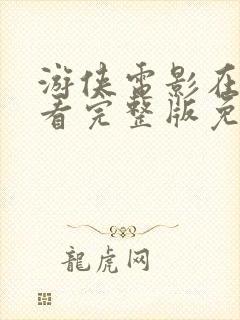 游侠电影在
看完整版免
龍虎网